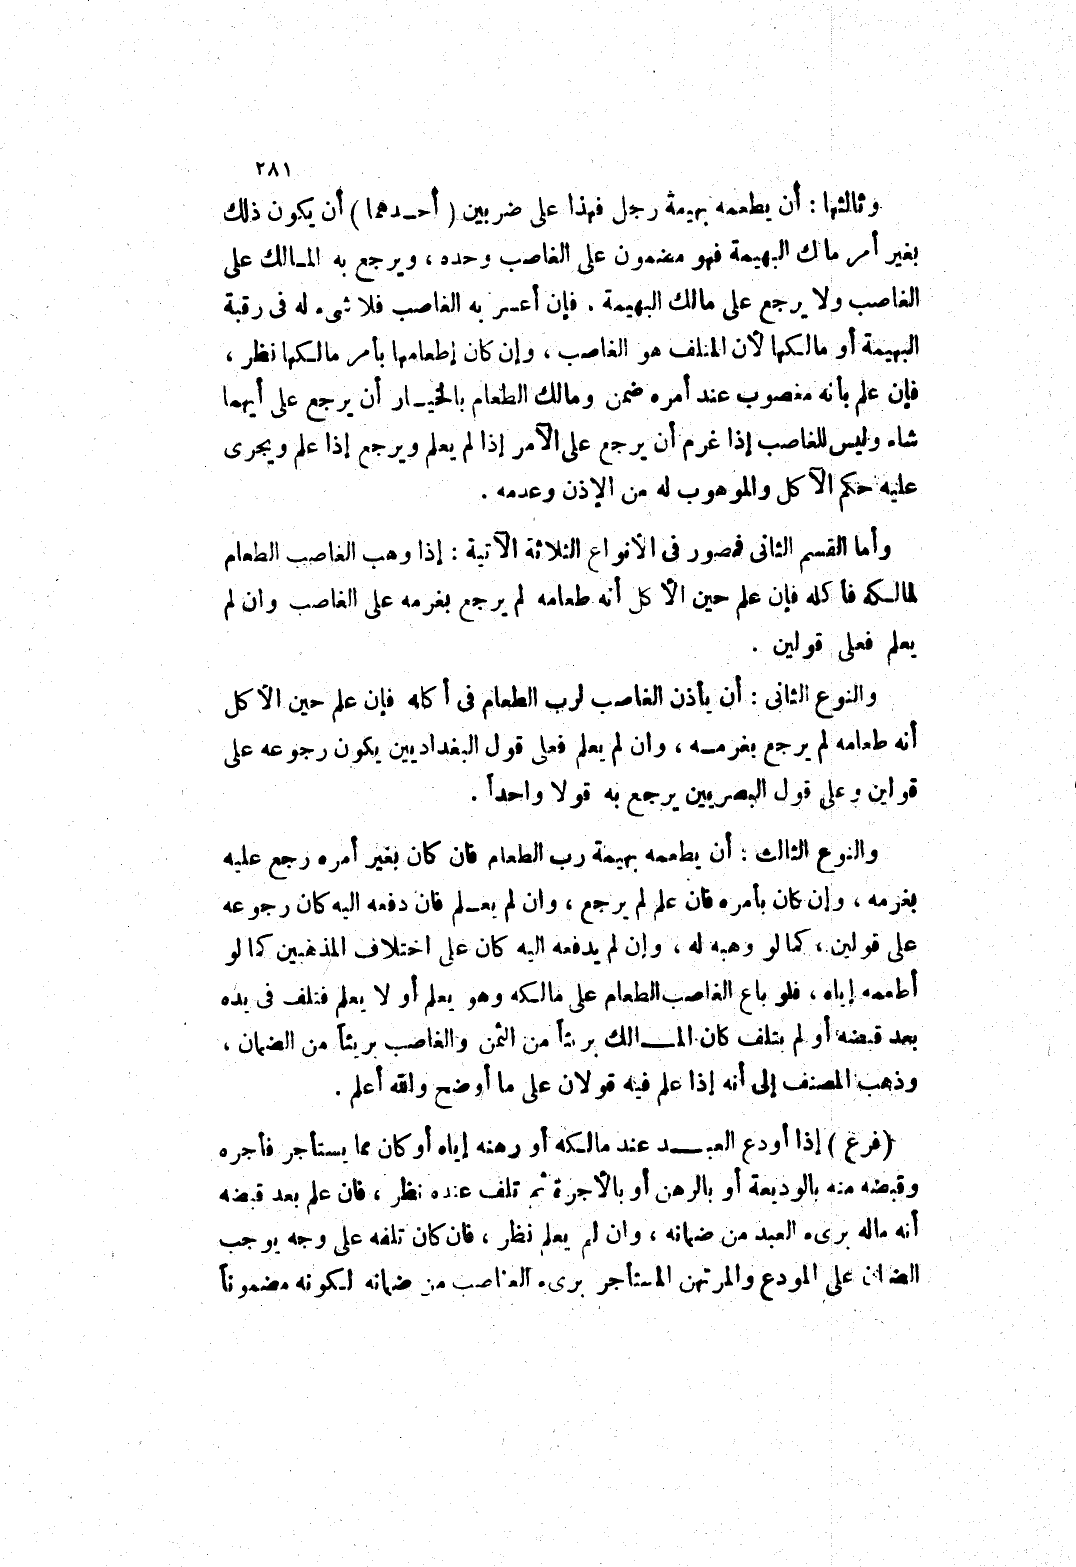 ٢٨١
وثالثها : أن يطعمه بهيمة رجل فهذا على ضربين ( أحـدهما ) أن يكون ذلك
بغير أمر مالك البهيمة فهو مضمون على الغاصب وحده ، ويرجع به المـالك على
الغاصب ولا يرجع على مالك البهيمة . فإن أعسر به الغاصب فلا شىء له فى رقبة
البهيمة أو مالكها لأن المتلف هو الغاصب ، وإن كان إطعامها بأمر مالكها نظر ،
فإن علم بأنه مغصوب عند أمره ضمن ومالك الطعام بالخيـار أن يرجع على أيهما
شاء وليس للغاصب إذا غرم أن يرجع على الآمر إذا لم يعلم ويرجع إذا علم ويجرى
عليه حكم الآكل والموهوب له من الإذن وعدمه .
وأما القسم الثانى فمصور فى الأنواع الثلاثة الآتية : إذا وهب الغاصب الطعام
لمالكه فأكله فإن علم حين الأكل أنه طعامه لم يرجع بغرمه على الغاصب وان لم
يعلم فعلى قولين .
والنوع الثانى : أن يأذن الغاصب لرب الطعام فى أكله فإن علم حين الأكل
أنه طعامه لم يرجع بغرمـه ، وان لم يعلم فعلى قول البغداديين يكون رجوعه على
قولين وعلى قول البصريين يرجع به قولا واحداً .
والنوع الثالث : أن يطعمه بهيمة رب الطعام فان كان بغير أمره رجع عليه
بغرمه ، وإن كان بأمره فان علم لم يرجع ، وان لم يعـلم فان دفعه اليه كان رجوعه
على قولين ، كما لو وهبه له ، وإن لم يدفعه اليه كان على اختلاف المذهبين كما لو
أطعمه إياه ، فلو باع الغاصب الطعام على مالكه وهو يعلم أو لا يعلم فتلف فى يده
بعد قبضه أو لم يتلف كان المــالك بريئاً من الثمن والغاصب بريئاً من الضمان ،
وذهب المصنف إلى أنه إذا علم فيه قولان على ما أوضح والله أعلم .
( فرع ) إذا أودع العبــد عند مالكه أو رهنه إياه أو كان مما يستأجر فأجره
وقبضه منه بالوديعة أو بالرهن أو بالأجرة ثم تلف عنده نظر ، فان علم بعد قبضه
أنه ماله برىء العبد من ضمانه ، وان لم يعلم نظر ، فان كان تلفه على وجه يوجب
الضمان على المودع والمرتهن المستأجر برىء الغاصب من ضمانه لكونه مضموناً